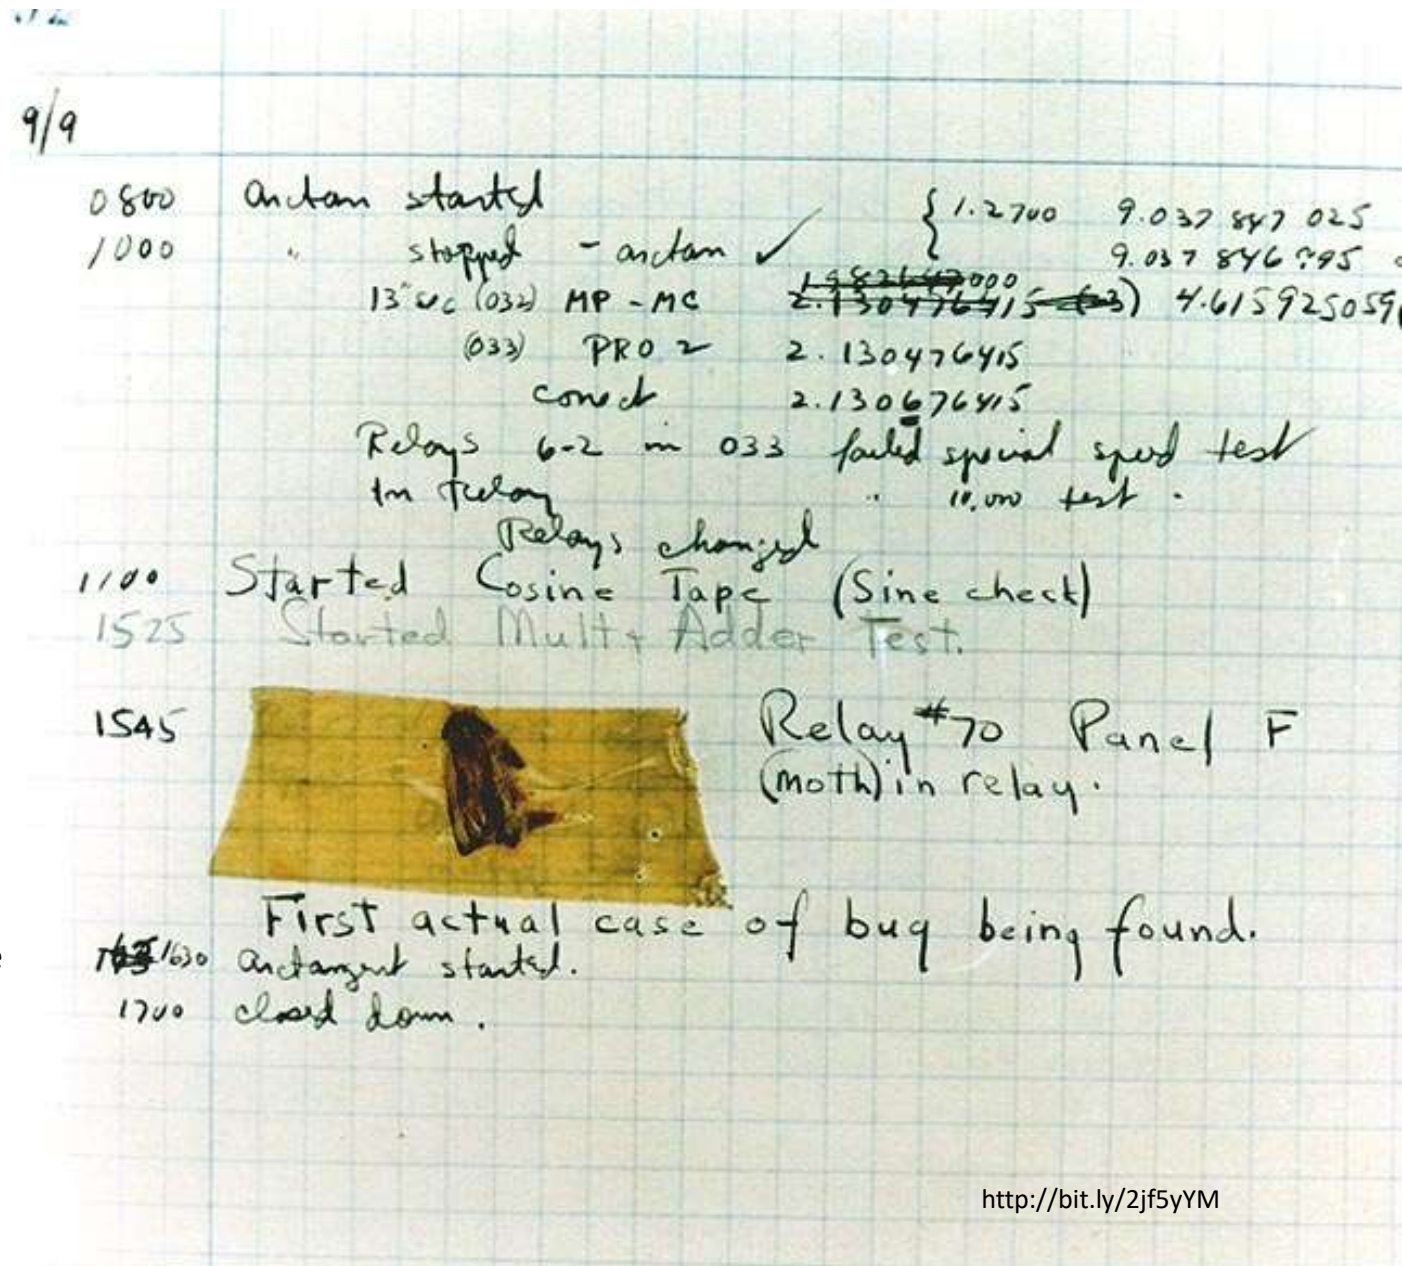 9/9
0800 arctan started { 1.2700 9.037 847 025
1000 " stopped - arctan ✓ 9.037 846 795
1982647000
13"uc (032) MP - MC 2.130476415 (-3) 4.615925059
(033) PRO 2 2.130476415
correct 2.130676415
Relays 6-2 in 033 failed special speed test
In relay " 10,000 test .
Relays changed
1100 Started Cosine Tape (Sine check)
1525 Started Mult + Adder Test.
1545 Relay #70 Panel F
(moth) in relay.
First actual case of bug being found.
1630 arctangent started.
1700 closed down.
http://bit.ly/2jf5yYM